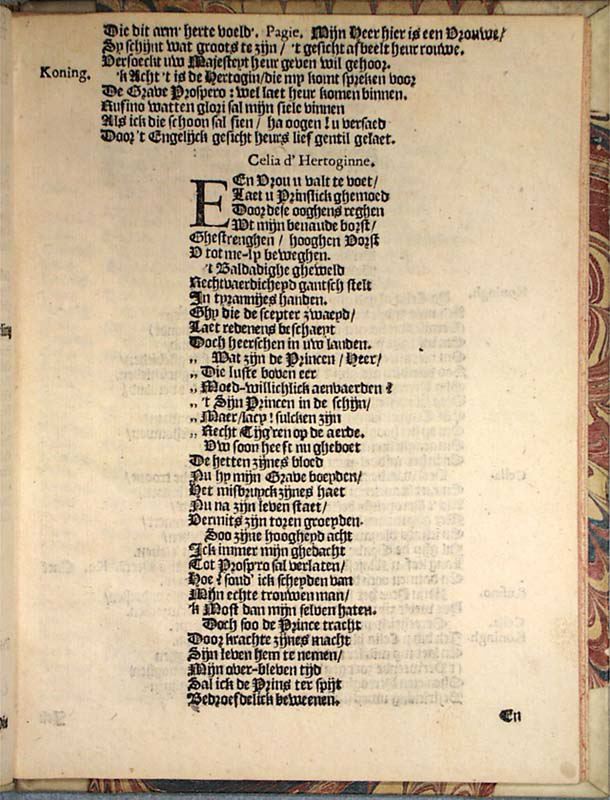 Die dit arm' herte voeld'. Pagie. Mijn Heer hier is een Vrouwe/
Sy schijnt wat groots te zijn / 't gesicht afbeelt heur rouwe.
Versoeckt uw Majesteyt heur geven wil gehoor.
Koning. 'k Acht 't is de Hertogin/die my komt spreken voor
De Grave Prospero: wel laet heur komen binnen.
Rufino watten glori sal mijn siele vinnen
Als ick die schoon sal sien / ha oogen! u versaed
Door 't Engelijck gesicht heurs lief gentil gelaet.
Celia d' Hertoginne.
EEn Vrou u valt te voet/
Laet u Prinslick ghemoed
Door dese ooghens reghen
Wt mijn benaude borst/
Ghestrenghen / hooghen Vorst
V tot me-ly beweghen.
't Baldadighe gheweld
Rechtvaerdicheyd gantsch stelt
In tyrannijes handen.
Ghy die de scepter zwaeyd/
Laet redenens beschaeyt
Doch heerschen in uw landen.
„ Wat zijn de Princen / Heer/
„ Die luste boven eer
„ Moed-willichlick aenvaerden?
„ 't Sijn Princen in de schijn/
„ Maer/lacy! sulcken zijn
„ Recht Tijg'ren op de aerde.
Vw soon heeft nu gheboet
De hetten zijnes bloed
Nu hy mijn Grave boeyden/
Het misbruyck zijnes haet
Nu na zijn leven staet/
Vermits zijn toren groeyden.
Soo zijne hoogheyd acht
Ick immer mijn ghedacht
Tot Prosp'ro sal verlaten/
Hoe? soud' ick scheyden van
Mijn echte trouwen man/
'k Most dan mijn selven haten.
Doch soo de Prince tracht
Door krachte zijnes macht
Sijn leven hem te nemen/
Mijn over-bleven tijd
Sal ick de Prins ter spijt
Bedroefdelick beweenen.
En